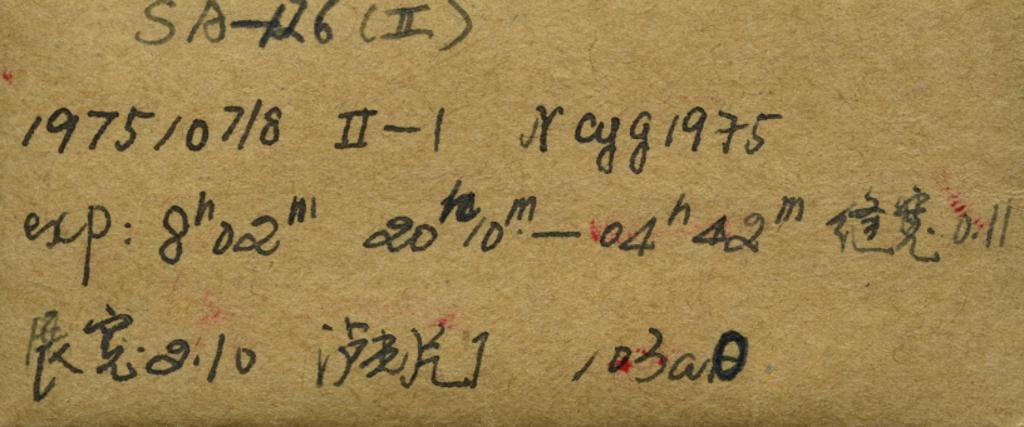 SA-126(II)
1975 10 7/8 II-1 N cyg 1975
exp: 8h02m 20h10m—04h42m 缝宽:0.11
展宽:2.10 滤光片1 103aO